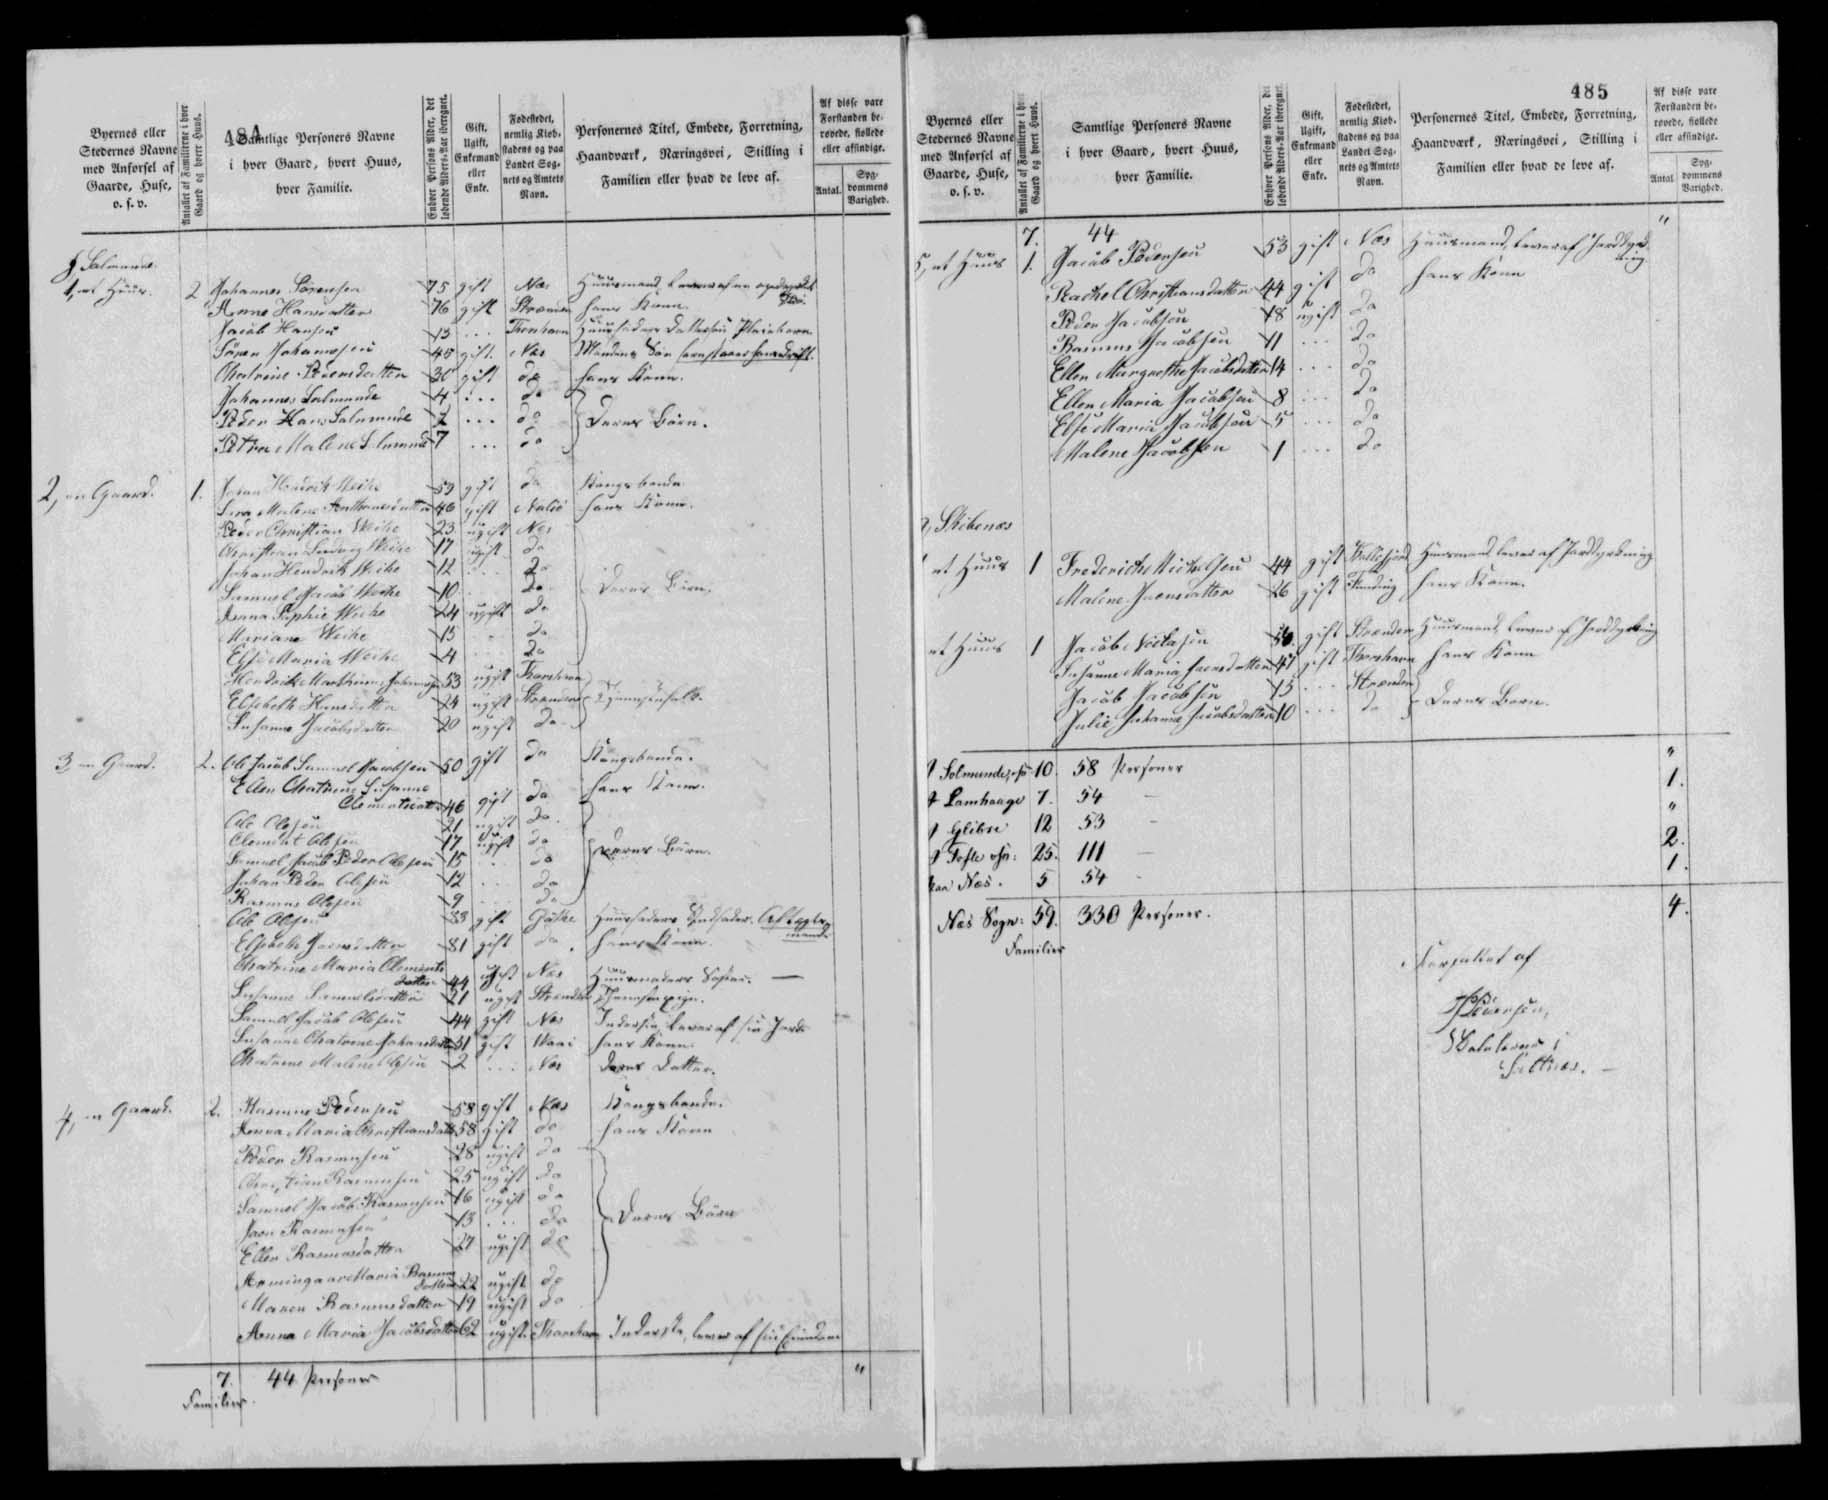 484
Byernes eller Stedernes Navne med Anførsel af Gaarde, Huse, o. s. v.
Antallet af Familierne i hver Gaard og hvert Huus.
Samtlige Personers Navne i hver Gaard, hvert Huus, hver Familie.
Enhver Persons Alder, det løbende Alders-Aar iberegnet.
Gift, Ugift, Enkemand eller Enke.
Fødestedet, nemlig Kiøbstadens og paa Landet Sognets og Amtets Navn.
Personernes Titel, Embede, Forretning, Haandværk, Næringsvei, Stilling i Familien eller hvad de leve af.
Af disse vare Forstanden berøvede, fiollede eller afsindige.
Antal.
Sygdommens Varighed.
1, et Huus. 2 Johannes Sørensen 75 gift Næs Huusmand
Anna Hansdatter 76 gift Strænder hans Kone
Jacob Hansen 13 ... Thorshavn
Søren Johannesen 45 gift Næs Mandens Søn
Chatrine Pedersdatter 36 gift do hans Kone.
Johannes Salmunde 4 ... do
Peder Hans Salmunde 2 ... do Deres Børn.
Petra Malene Salmunde 7 ... do
2, en Gaard. 1. Johan Hendrik Weihe 59 gift do Kongsbonde
46 gift Nolsø hans Kone.
Peder Christian Weihe 23 ugift Næs
Christian Ludvig Weihe 17 ugift do
Johan Hendrik Weihe 12 ... do
Samuel Jacob Weihe 10 .. do Deres Børn.
Anna Sophie Weihe 24 ugift do
Mariane Weihe 15 do
Else Maria Weihe 4 do
53 ugift Thorshavn
Elsebeth Hansdatter 24 ugift Strænder Tjenestefolk.
Susanne Jacobsdatter 20 ugift do
3, en Gaard. 2. Ole Jacob Samuel Jacobsen 50 gift do Kongsbonde.
Ellen Chatrine Susanne
Clementsdatter 46 gift do hans Kone.
Ole Olesen 21 ugift do
Clement Olesen 17 ugift do
Samuel Jacob Peder Olesen 15 .. do deres Børn.
Johan Peder Olesen 12 ... do
Rasmus Olesen 9 ... do
Ole Olesen 83 gift Gøthe
Elsebeth Joensdatter 81 gift do hans Kone.
Chatrine Maria Clements
datter 44 ugift Næs Huusmoders Søster. —
Susanne Samuelsdatter 21 ugift Strænder Tjenestepige.
Samuel Jacob Olesen 44 gift Næs Inderste, lever af sin Jord.
Susanne Chatrine 31 gift hans Kone.
Chatrine Malene Olesen 2 ... Næs deres Datter.
4, en Gaard. 2. Rasmus Pedersen 58 gift Næs Kongsbonde.
Anna Maria Christiansdatter 58 gift do hans Kone
Peder Rasmussen 28 ugift do
Christian Rasmussen 25 ugift do
Samuel Jacob Rasmussen 16 ugift do
Joen Rasmussen 13 ... do Deres Børn
Ellen Rasmusdatter 27 ugift do
Armingaar Maria Rasmus
datter 22 ugift do
Maren Rasmusdatter 19 ugift do
Anna Maria Jacobsdatter 62 ugift Thorshavn Inderste, lever af sin
7. 44 Personer "
Familier.
485
Byernes eller Stedernes Navne med Anførsel af Gaarde, Huse, o. s. v.
Antallet af Familierne i hver Gaard og hvert Huus.
Samtlige Personers Navne i hver Gaard, hvert Huus, hver Familie.
Enhver Persons Alder, det løbende Alders-Aar iberegnet.
Gift, Ugift, Enkemand eller Enke.
Fødestedet, nemlig Kiøbstadens og paa Landet Sognets og Amtets Navn.
Personernes Titel, Embede, Forretning, Haandværk, Næringsvei, Stilling i Familien eller hvad de leve af.
Af disse vare Forstanden berøvede, fiollede eller afsindige.
Antal.
Sygdommens Varighed.
7. 44 "
5, et Huus 1. Jacob Pedersen 53 gift Næs Huusmand, lever af Jorddyrkning.
Rachel Christiansdatter 44 gift do hans Kone
Peder Jacobsen 18 ugift do
Rasmus Jacobsen 11 ... do
Ellen Margrethe Jacobsdatter 14 ... do
Ellen Maria Jacobsen 8 ... do
Else Maria Jacobsen 5 ... do
Malene Jacobsen 1 ... do
Skibenæs
et Huus 1 Frederich Michelsen 44 gift Huusmand lever af Jorddyrkning
Malene Joensdatter 26 gift Funding hans Kone.
et Huus 1 Jacob 56 gift Strænder Huusmand, lever af Jorddyrkning
Susanne Maria Joensdatter 47 gift Thorshavn hans Kone
Jacob Jacobsen 13 ... Strænder
Julie Johanne Jacobsdatter 10 ... do Deres Børn.
I Solmunde 10. 58 Personer "
I Lamhauge 7. 54 — 1.
I Glibre 12 53 — "
I Tofte 25. 111 — 2.
paa Næs. 5 54 - 1.
Næs Sogn: 59. 330 Personer. 4.
Familier
Forfattet af
Pedersen,
Saltnæs. —